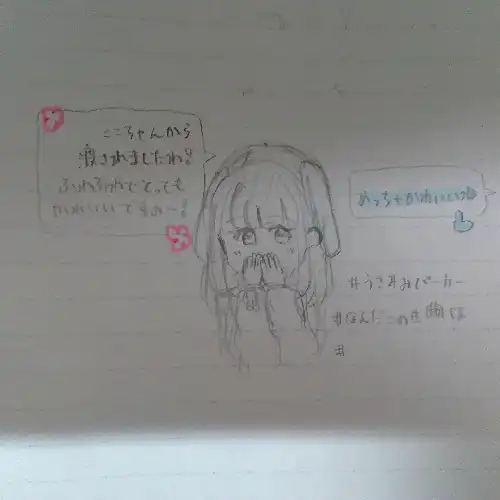 ここちゃんから
渡されましたわ!
ふわふわでとっても
かわいいですの〜!
めっちゃかわいいっ
#うさ耳おパーカー
#なんだこの生
#